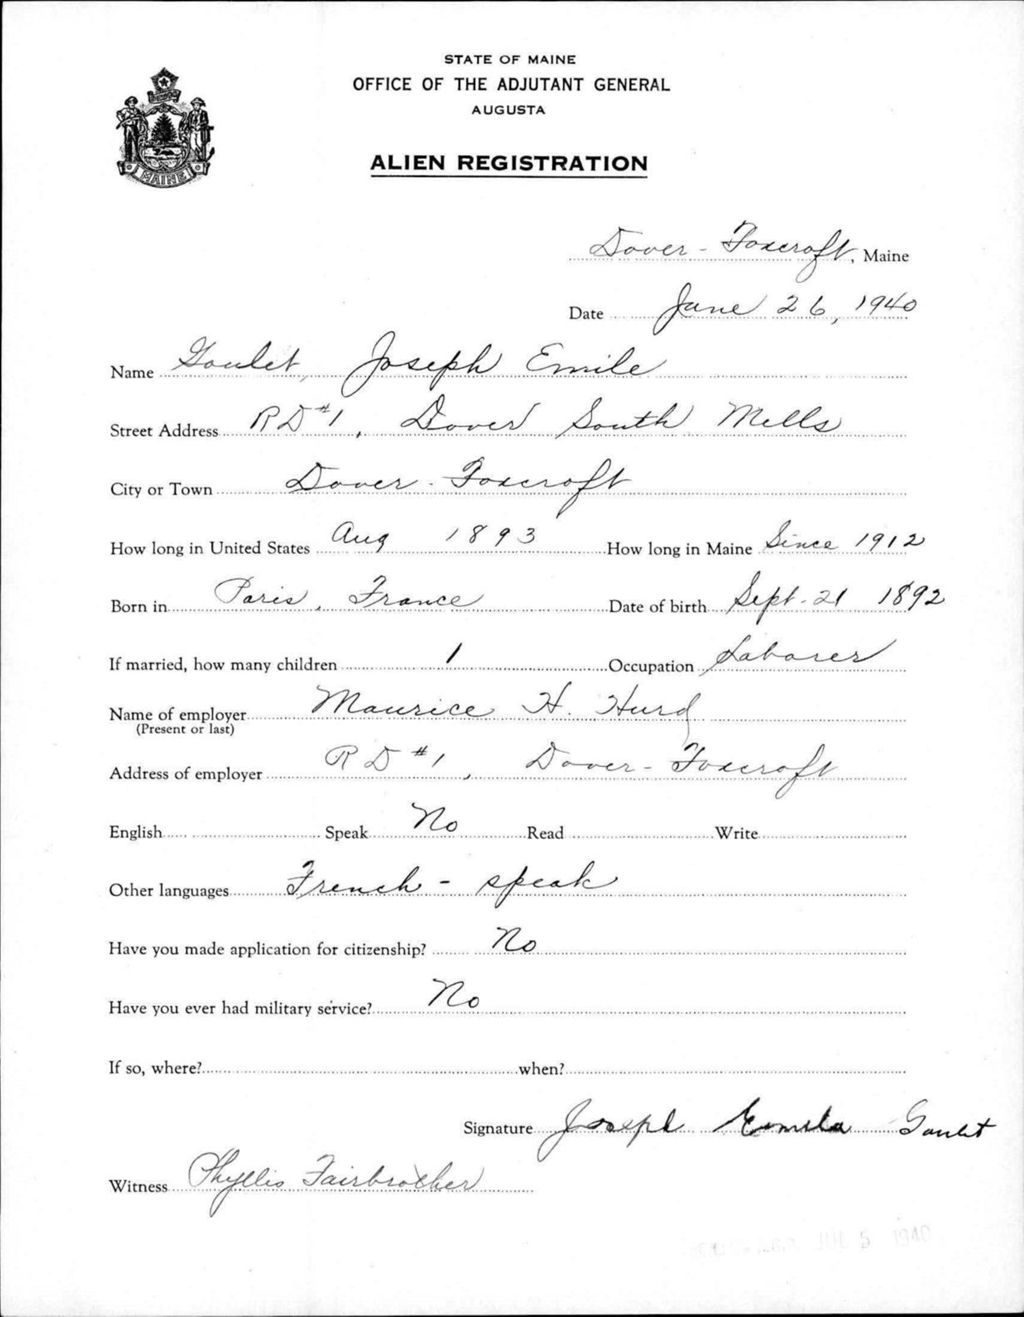 STATE OF MAINE
OFFICE OF THE ADJUTANT GENERAL
AUGUSTA
ALIEN REGISTRATION
MAINE
Dover - Foxcroft, Maine
Date June 26, 1940
Name Goulet, Joseph Emile
Street Address RD #1, Dover South Mills
City or Town Dover - Foxcroft
How long in United States Aug 1893 How long in Maine Since 1912
Born in Paris, France Date of birth Sept. 21 1892
If married, how many children 1 Occupation Laborer
Name of employer Maurice H. Hurd
(Present or last)
Address of employer RD #1, Dover - Foxcroft
English Speak No Read Write
Other languages French - speak
Have you made application for citizenship? No
Have you ever had military service? No
If so, where? when?
Signature Joseph Emila Goulet
Witness Phyllis Fairbrother
JUL 5 1940